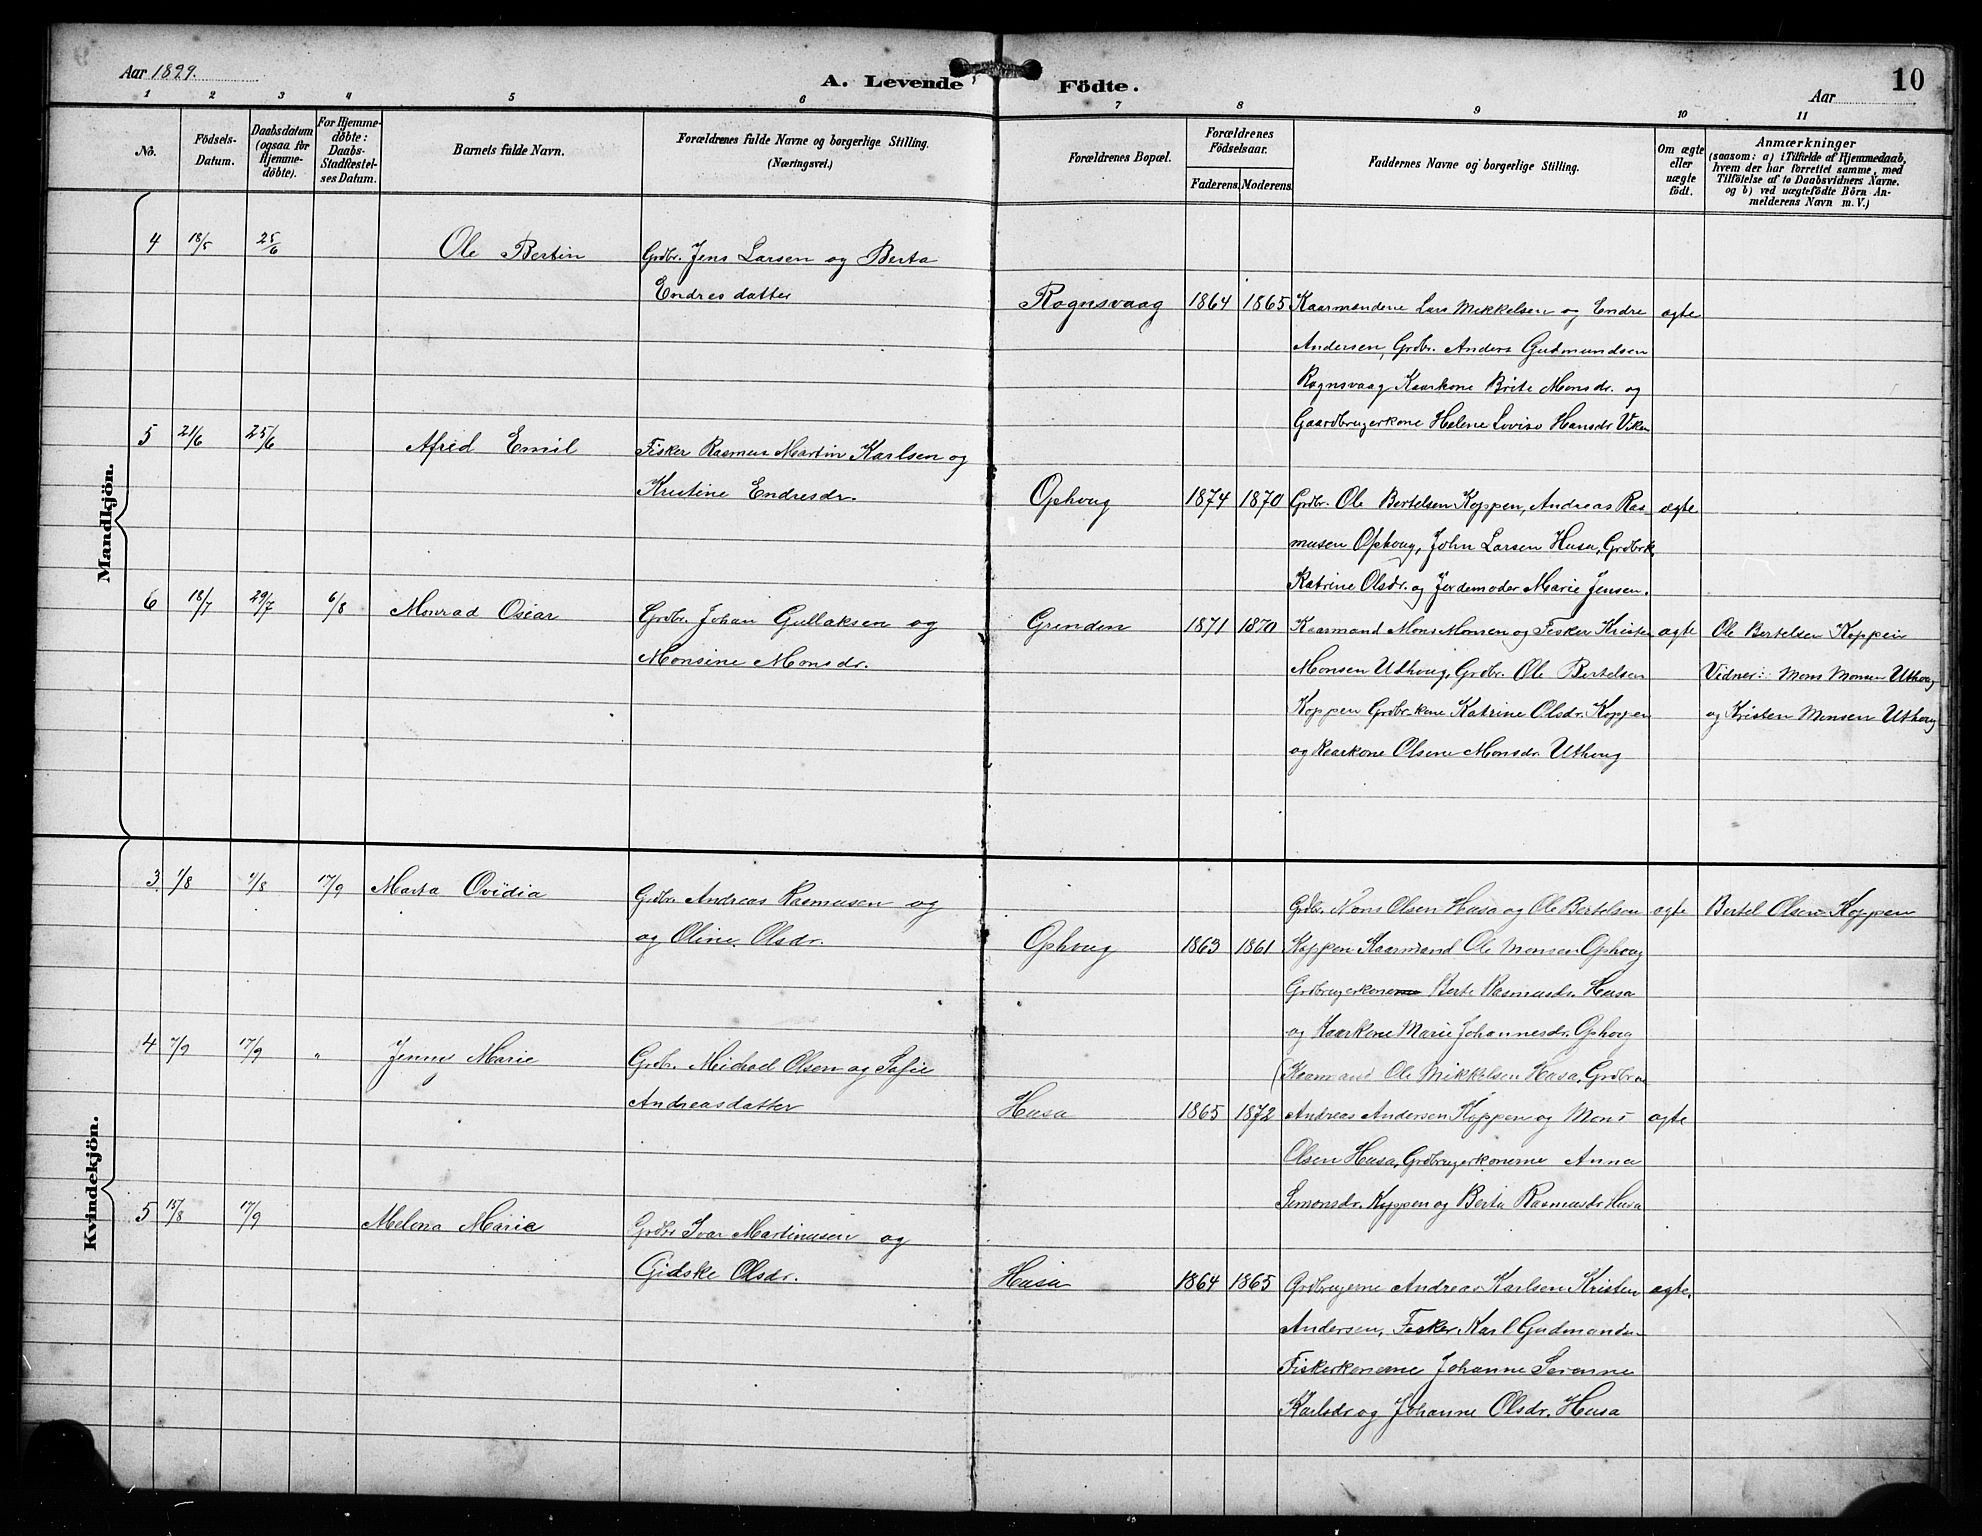 Aar 1899.
A. Levende Födte.
Aar
10
1 2 3 4 5 6 7 8 9 10 11
No.
Födsels-
Datum.
Daabsdatum
(ogsaa for
Hjemme-
döbte).
For Hjemme-
döbte:
Daabs-
Stadfæstel-
ses Datum.
Barnets fulde Navn.
Forældrenes fulde Navne og borgerlige Stilling.
(Næringsvei.)
Forældrenes Bopæl.
Forældrenes
Födselsaar.
Faderens. Moderens.
Faddernes Navne og borgerlige Stilling.
Om ægte
eller
uægte
födt.
Anmærkninger
(saasom: a) i Tilfælde af Hjemmedaab,
hvem der har forrettet samme, med
Tilföielse af to Daabsvidners Navne.
og b) ved uægtefödte Börn An-
melderens Navn m. V.)
Mandkjön.
4 18/5 25/6 Ole Bertin Grdbr. Jens Larsen og Berta
Endresdatter
Rognsvaag 1864 1865 Kaarmændene Lars Mikkelsen og Endre ægte
Andersen, Grdbr. Anders Gutmundsen
Rognsvaag Kaarkone Brite Monsdr. og
Gaardbrugerkone Helene Lovise Hansdr. Viken
5 21/6 25/6 Afred Emil Fisker Rasmus Martin Karlsen og
Kristine Endresdr.
Ophoug 1874 1870 Grdbr. Ole Bertelsen Koppen, Andreas Ras- ægte
musen Ophoug, John Larsen Husa, Grdbrk.
Katrine Olsdr. og Jordemoder Marie Jensen.
6 18/7 29/7 6/8 Monrad Oscar Grdbr. Johan Gullaksen og
Monsine Monsdr.
Grinden 1871 1870 Kaarmand Mons Monsen og Fisker Kristen ægte Ole Bertelsen Koppen
Monsen Uthoug, Grdbr. Ole Bertelsen Vidner: Mons Monsen Uthoug
Koppen Grdbr.kone Katrine Olsdr. Koppen og Kristen Monsen Uthoug
og Kaarkone Olsene Monsdr. Uthoug
Kvindekjön.
3 1/8 1/8 17/9 Marta Ovidia Grdbr. Andreas Rasmusen og
og Oline Olsdr.
Grdbr. Mons Olsen Husa og Ole Bertelsen ægte Bertel Olsen Koppen
Ophoug 1863 1861 Koppen Kaarmand Ole Monsen Ophoug
Grdbrugerkonerne Berte Rasmusdr. Husa
og Kaarkone Marie Johannesdr. Ophoug
4 7/9 17/9 " Jenny Marie Grdbr. Michael Olsen og Sofie
Andreasdatter
(Kaarmand Ole Mikkelsen Husa, Grdbr.ne
Husa 1865 1872 Andreas Andersen Koppen og Mons ægte
Olsen Husa, Grdbrugerkonerne Anna
Simonsdr. Koppen og Berta Rasmusdr. Husa
5 15/8 17/9 Melena Marie Grdbr. Ivar Martinusen og
Gidske Olsdr.
Husa 1864 1865 Grdbrugerne Andreas Karlsen Kristen ægte.
Andersen, Fisker Karl Gudmunds-
Fiskerkonerne Johanne Serenne
Karlsdr og Johanne Olsdr. Husa